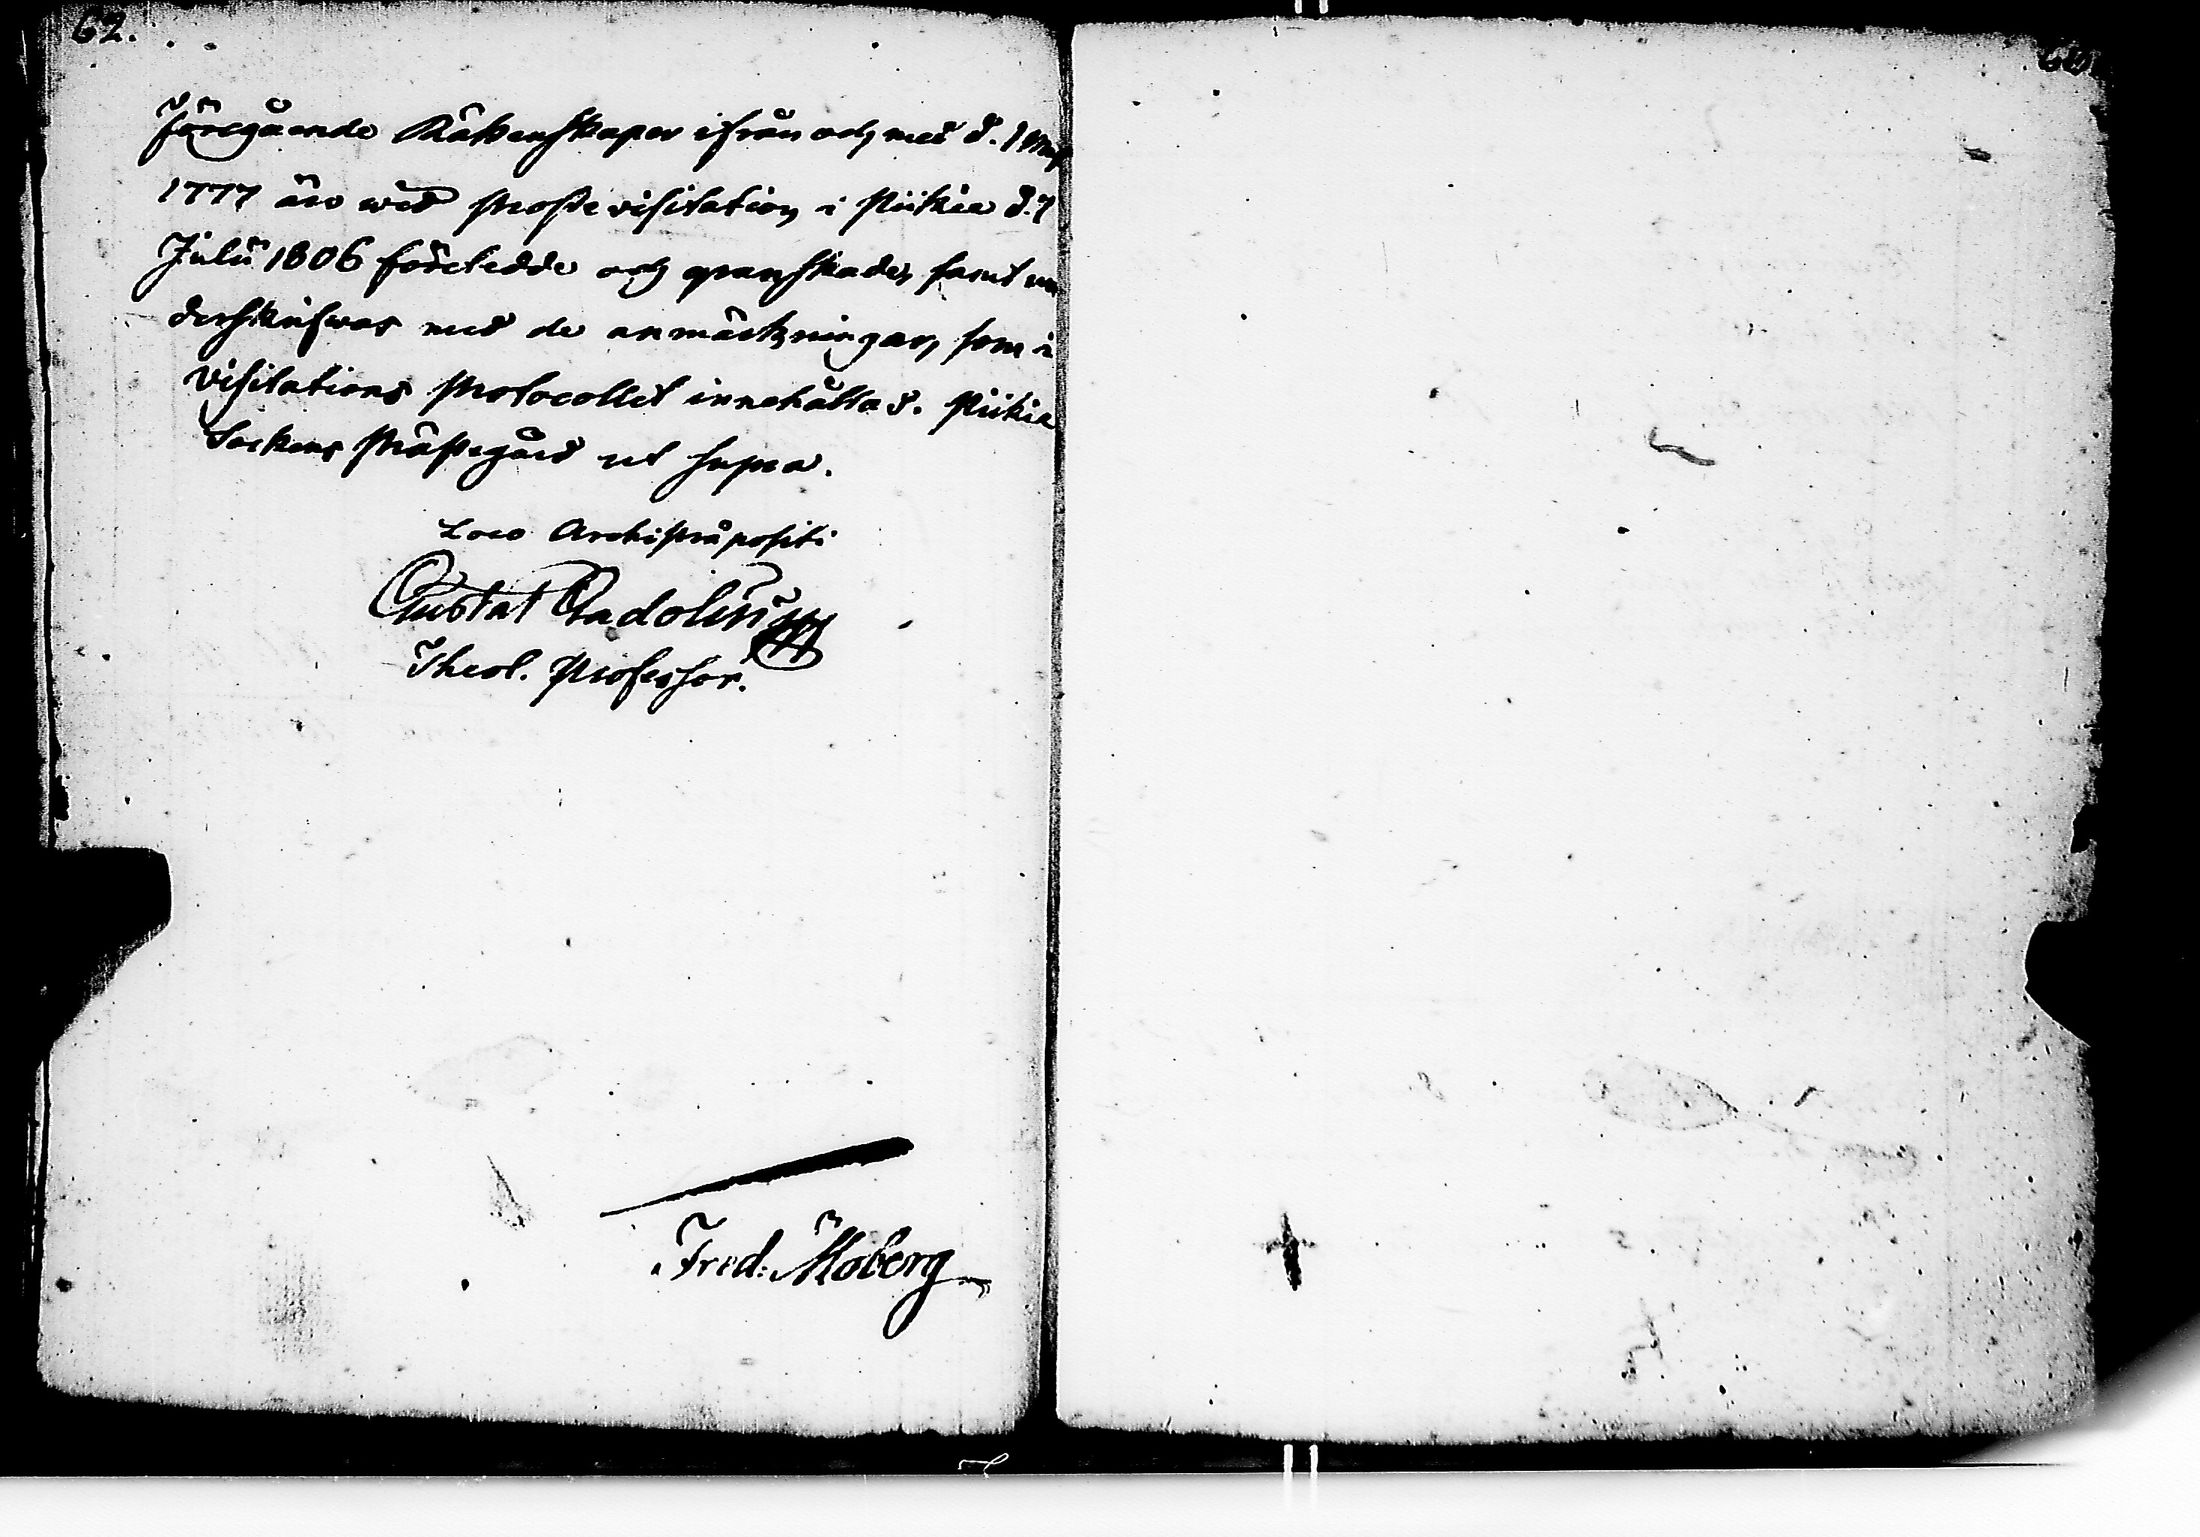 62.
Föregående Räkenskaper ifrån och med d. 1 Maj
1777 äro wid Prostevisitation i Piikie d. 7
Julii 1806 företedde och granskade, samt un
derskrifwas med de anmärkningar, som i
Visitations Protocollet innehållas. Piikie
Sockens Prästegård ut supra.
Loco Archipräpositi
Gustaf Gadolin
Theol. Professor.
Fred: Moberg